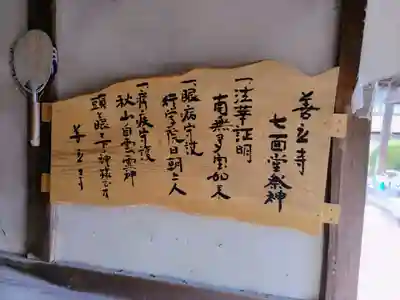 善立寺
七面堂祭神
一、法華証明
南無多宝如来
一、眼病守護
行学院日朝上人
一、痔疾守護
秋山自雲霊神
頭と眼と下の神様です
善立寺